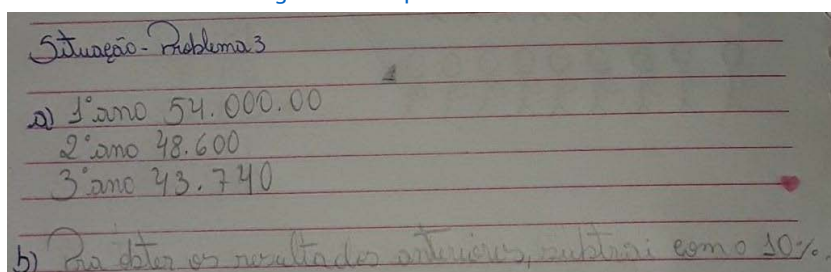 Situação - Problema 3
a) 1° ano 54.000.00
2° ano 48.600
3° ano 43.740
b) Pra obter os resultados anteriores, subtrai com o 10%